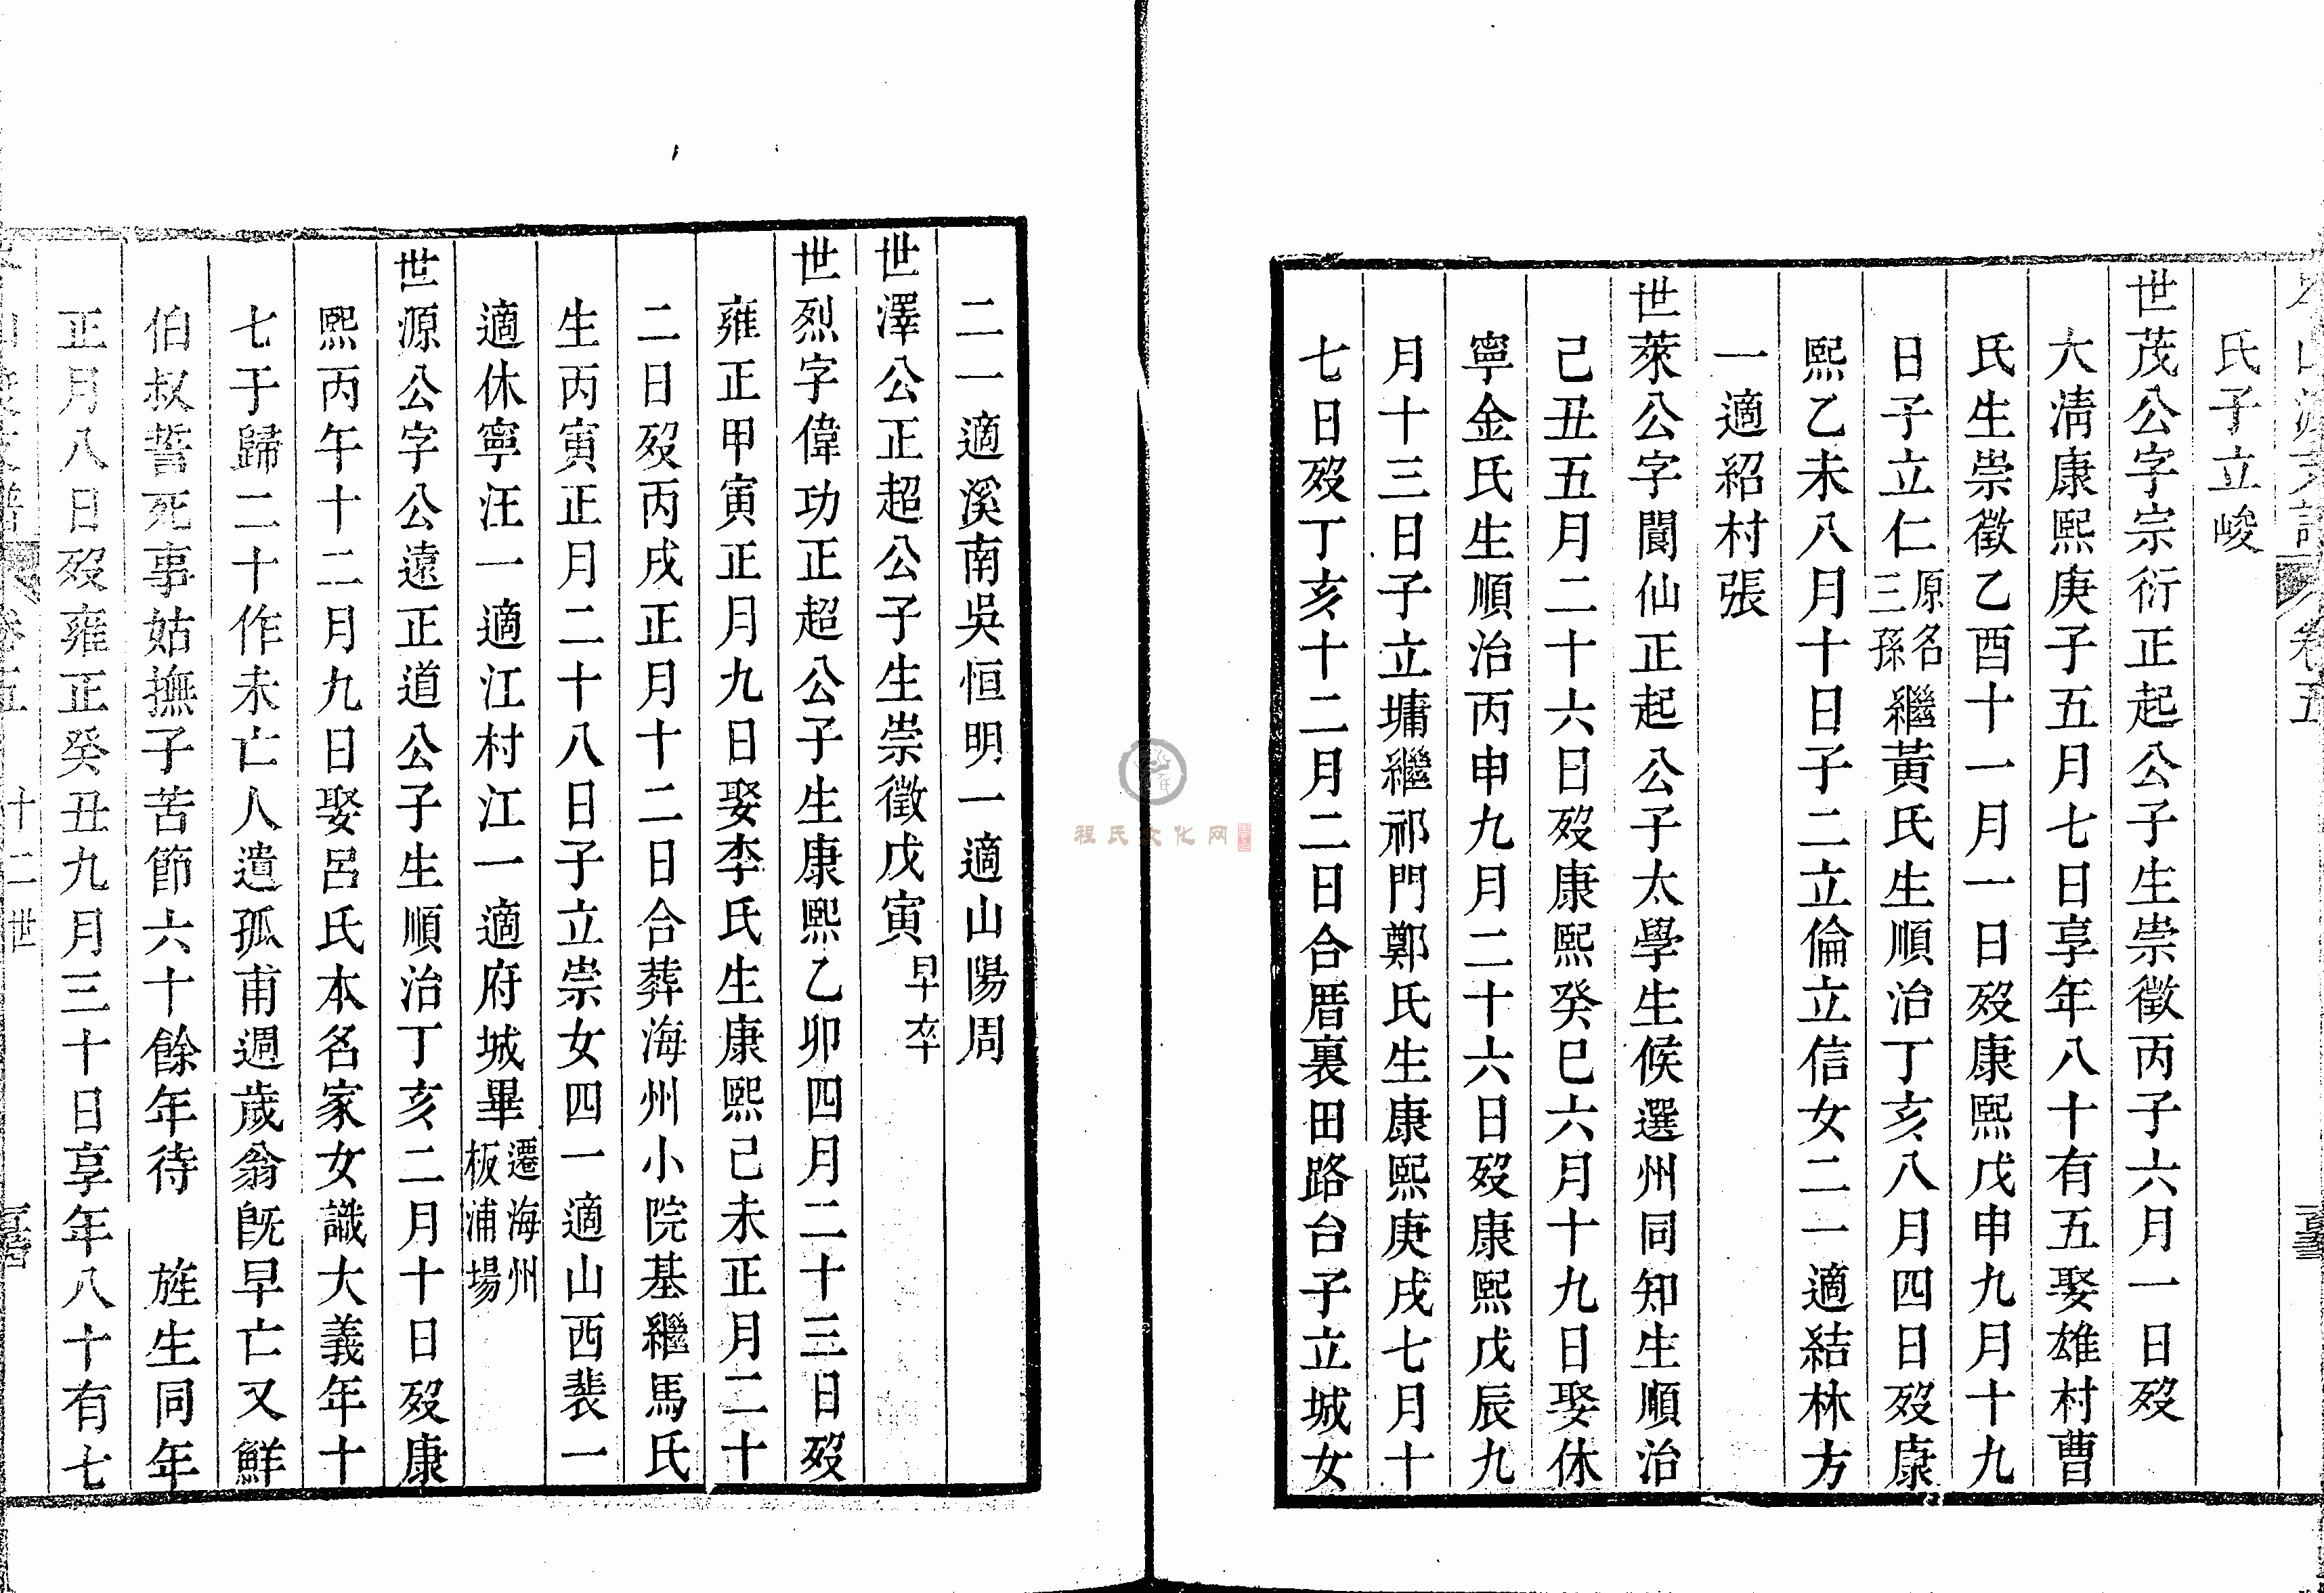 卷五
氏子立峻
世茂公字宗衍正起公子生崇徵丙子六月一日歿
大清康熙庚子五月七日享年八十有五娶雄村曹
氏生崇徵乙酉十一月一日歿康熙戊申九月十九
日子立仁原名三孫繼黃氏生順治丁亥八月四日歿康
熙乙未八月十日子二立倫立信女二一適結林方
一適紹村張
世萊公字閬仙正起公子太學生候選州同知生順治
己丑五月二十六日歿康熙癸巳六月十九日娶休
寧金氏生順治丙申九月二十六日歿康熙戊辰九
月十三日子立墉繼祁門鄭氏生康熙庚戌七月十
七日歿丁亥十二月二日合厝裏田路台子立城女
二一適溪南吳恒明一適山陽周
世澤公正超公子生崇徵戊寅早卒
世烈字偉功正超公子生康熙乙卯四月二十三日歿
雍正甲寅正月九日娶李氏生康熙己未正月二十
二日歿丙戌正月十二日合葬海州小院基繼馬氏
生丙寅正月二十八日子立崇女四一適山西裴一
適休寧汪一適江村江一適府城畢遷海州板浦場
世源公字公遠正道公子生順治丁亥二月十日歿康
熙丙午十二月九日娶呂氏本名家女識大義年十
七于歸二十作未亡人遺孤甫週歲翁旣早亡又鮮
伯叔誓死事姑撫子苦節六十餘年待　旌生同年
正月八日歿雍正癸丑九月三十日享年八十有七
卷五　十二世
程氏文化网